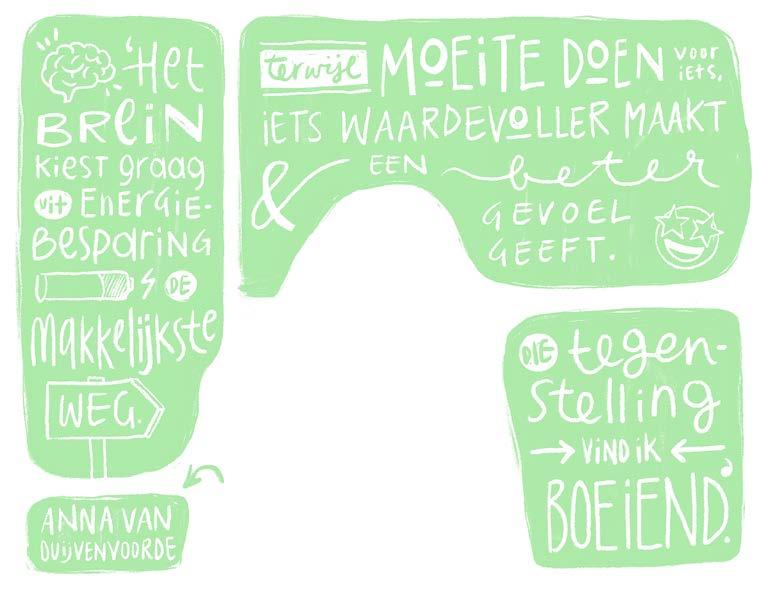 'Het
BREIN
kiest graag
uit ENERGIE-
BESPARING
DE
Makkelijkste
WEG.
terwijl MOEITE DOEN voor iets,
iETS WAARDEVOLLER MAAKT
& EEN beter
GEVOEL
GEEFT.
DIE tegen-
stelling
VIND iK
BOEiEND.'
ANNA VAN
DUijVENVOORDE